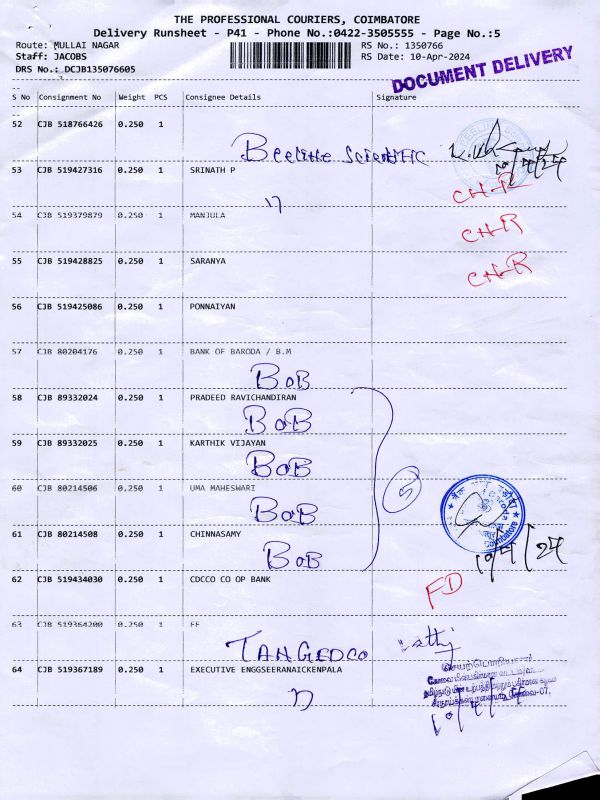 THE PROFESSIONAL COURIERS, COIMBATORE
Delivery Runsheet - P41 - Phone No.:0422-3505555 - Page No.:5
Route: MULLAI NAGAR RS No.: 1350766
Staff: JACOBS RS Date: 10-Apr-2024
DRS No.: DCJB135076605
DOCUMENT DELIVERY
S No Consignment No Weight PCS Consignee Details Signature
52 CJB 518766426 0.250 1
Beeline Scientific
10/4/24
53 CJB 519427316 0.250 1 SRINATH P
CH-R
54 CJB 519379879 0.250 1 MANJULA
CH-R
55 CJB 519428825 0.250 1 SARANYA
CH-R
56 CJB 519425086 0.250 1 PONNAIYAN
57 CJB 80204176 0.250 1 BANK OF BARODA / B.M
BOB
58 CJB 89332024 0.250 1 PRADEED RAVICHANDIRAN
BOB
59 CJB 89332025 0.250 1 KARTHIK VIJAYAN
BOB
5
60 CJB 80214506 0.250 1 UMA MAHESWARI
BOB
61 CJB 80214508 0.250 1 CHINNASAMY
BOB
Coimbatore
10/4/24
62 CJB 519434030 0.250 1 CDCCO CO OP BANK
FD
63 CJB 519364200 0.250 1 EE
TANGEDCO
64 CJB 519367189 0.250 1 EXECUTIVE ENGGSEERANAICKENPALA